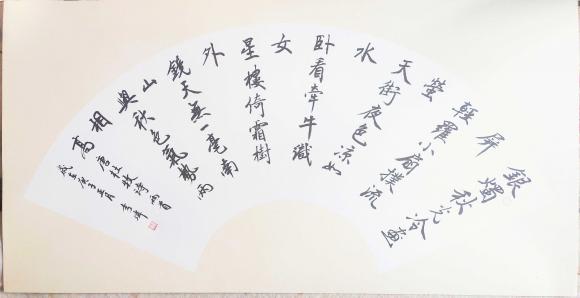 銀燭秋光冷畫
屏
輕羅小扇撲流
螢
天街夜色涼如
水
卧看牽牛織
女
星樓倚霜樹
外
鏡天無一毫南
山與秋色氣勢兩
相
高
唐杜牧詩兩首
歲在庚子五月